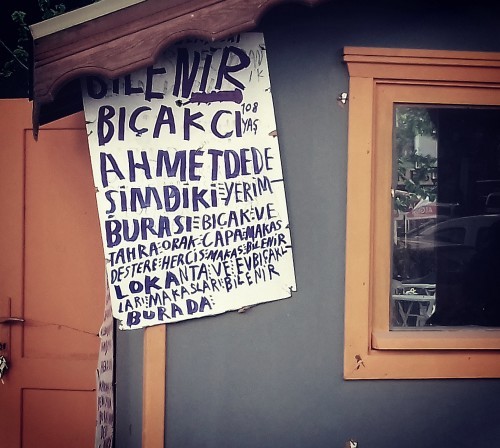 BİLENİR
BIÇAKCI 108 YAŞ
AHMETDEDE
ŞİMDİKİ YERİM
BURASI BIÇAK VE
TAHRA ORAK ÇAPA MAKAS
DESTERE HERCİS MAKAS BİLENİR
LOKANTA VE EV BIÇAKL
LARI MAKASLARI BİLENİR
BURADA